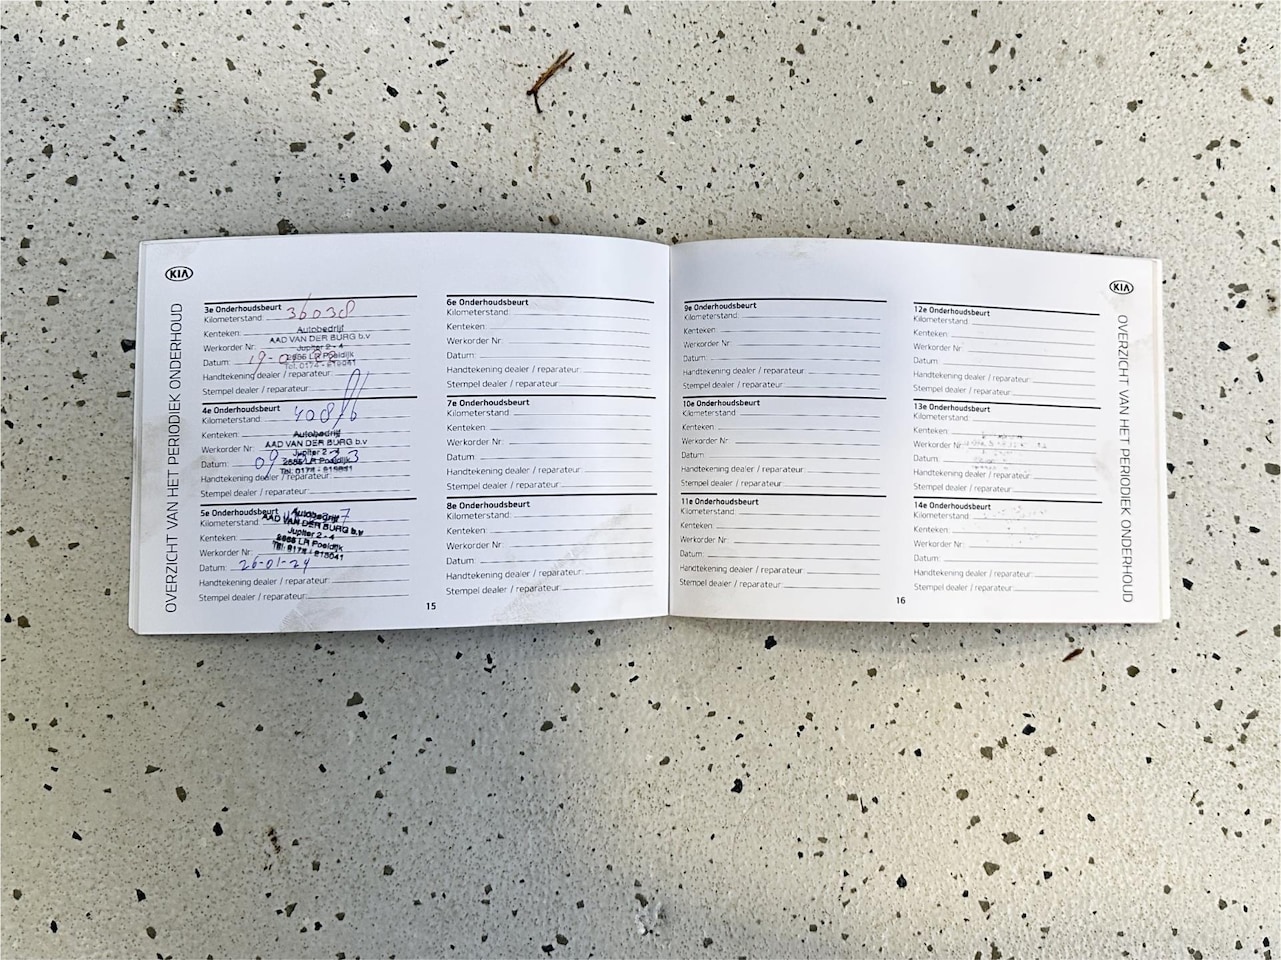 KIA
OVERZICHT VAN HET PERIODIEK ONDERHOUD
3e Onderhoudsbeurt
Kilometerstand: 36038
Kenteken:
Autobedrijf
AAD VAN DER BURG b.v
Werkorder Nr:
Jupiter 2 - 4
Datum: 19-
2685 LR Poeldijk
Tel. 0174 -
Handtekening dealer / reparateur:
Stempel dealer / reparateur:
4e Onderhoudsbeurt
Kilometerstand:
Kenteken:
Autobedrijf
AAD VAN DER BURG b.v
Werkorder Nr:
Jupiter 2 - 4
Datum: 09
2685 LR Poeldijk
Tel. 0174 -
Handtekening dealer / reparateur:
Stempel dealer / reparateur:
5e Onderhoudsbeurt
Kilometerstand:
Autobedrijf
AAD VAN DER BURG b.v
Kenteken:
Jupiter 2 - 4
Werkorder Nr:
2685 LR Poeldijk
Datum: 26-01-24
Handtekening dealer / reparateur:
Stempel dealer / reparateur:
6e Onderhoudsbeurt
Kilometerstand:
Kenteken:
Werkorder Nr:
Datum:
Handtekening dealer / reparateur:
Stempel dealer / reparateur:
7e Onderhoudsbeurt
Kilometerstand:
Kenteken:
Werkorder Nr:
Datum:
Handtekening dealer / reparateur:
Stempel dealer / reparateur:
8e Onderhoudsbeurt
Kilometerstand:
Kenteken:
Werkorder Nr:
Datum:
Handtekening dealer / reparateur:
Stempel dealer / reparateur:
15
9e Onderhoudsbeurt
Kilometerstand:
Kenteken:
Werkorder Nr:
Datum:
Handtekening dealer / reparateur:
Stempel dealer / reparateur:
10e Onderhoudsbeurt
Kilometerstand:
Kenteken:
Werkorder Nr:
Datum:
Handtekening dealer / reparateur:
Stempel dealer / reparateur:
11e Onderhoudsbeurt
Kilometerstand:
Kenteken:
Werkorder Nr:
Datum:
Handtekening dealer / reparateur:
Stempel dealer / reparateur:
12e Onderhoudsbeurt
Kilometerstand:
Kenteken:
Werkorder Nr:
Datum:
Handtekening dealer / reparateur:
Stempel dealer / reparateur:
13e Onderhoudsbeurt
Kilometerstand:
Kenteken:
Werkorder Nr:
Datum:
Handtekening dealer / reparateur:
Stempel dealer / reparateur:
14e Onderhoudsbeurt
Kilometerstand:
Kenteken:
Werkorder Nr:
Datum:
Handtekening dealer / reparateur:
Stempel dealer / reparateur:
16
KIA
OVERZICHT VAN HET PERIODIEK ONDERHOUD